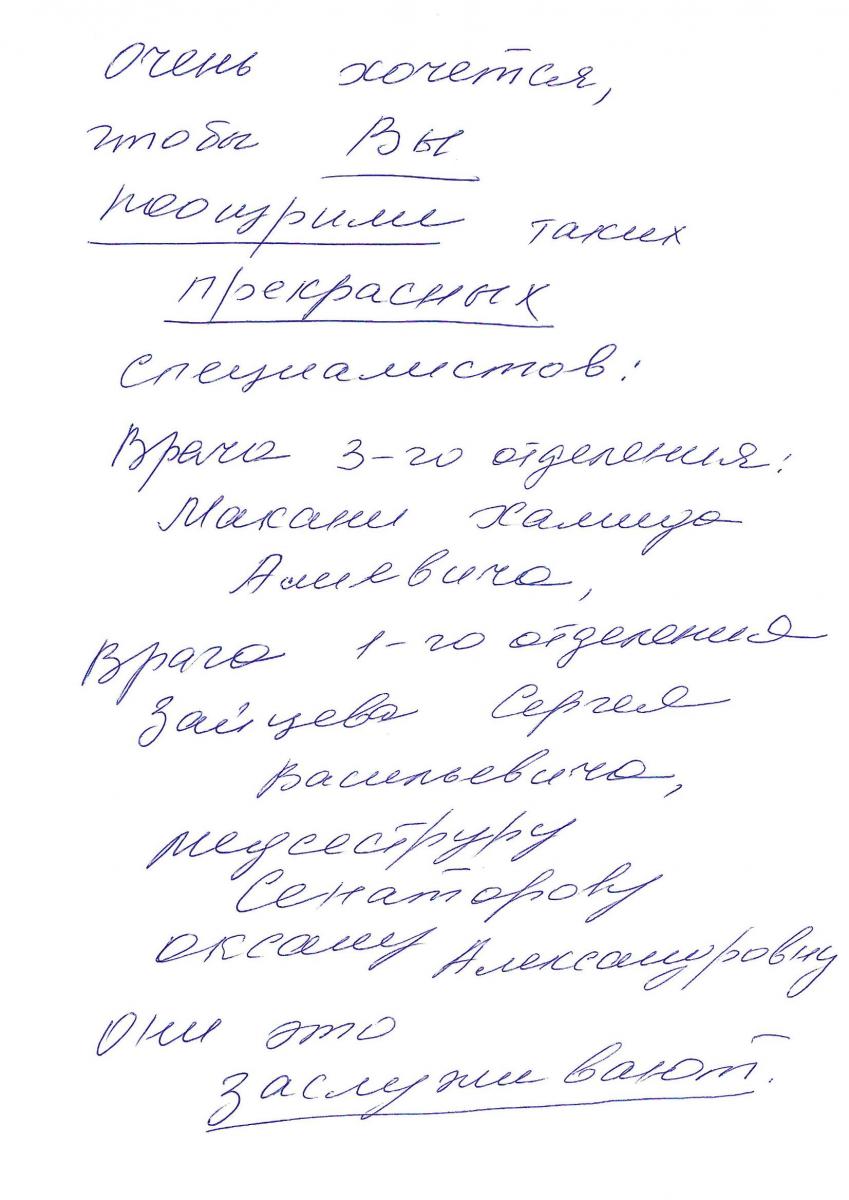 Очень хочется,
чтобы Вы
поощрили таких
прекрасных
специалистов:
Врача 3-го отделения:
Макани Хамида
Алиевича,
Врача 1-го отделения
Зайцева Сергея
Васильевича,
медсеструру
Сенаторову
Оксану Александровну
Они это
заслуживают.